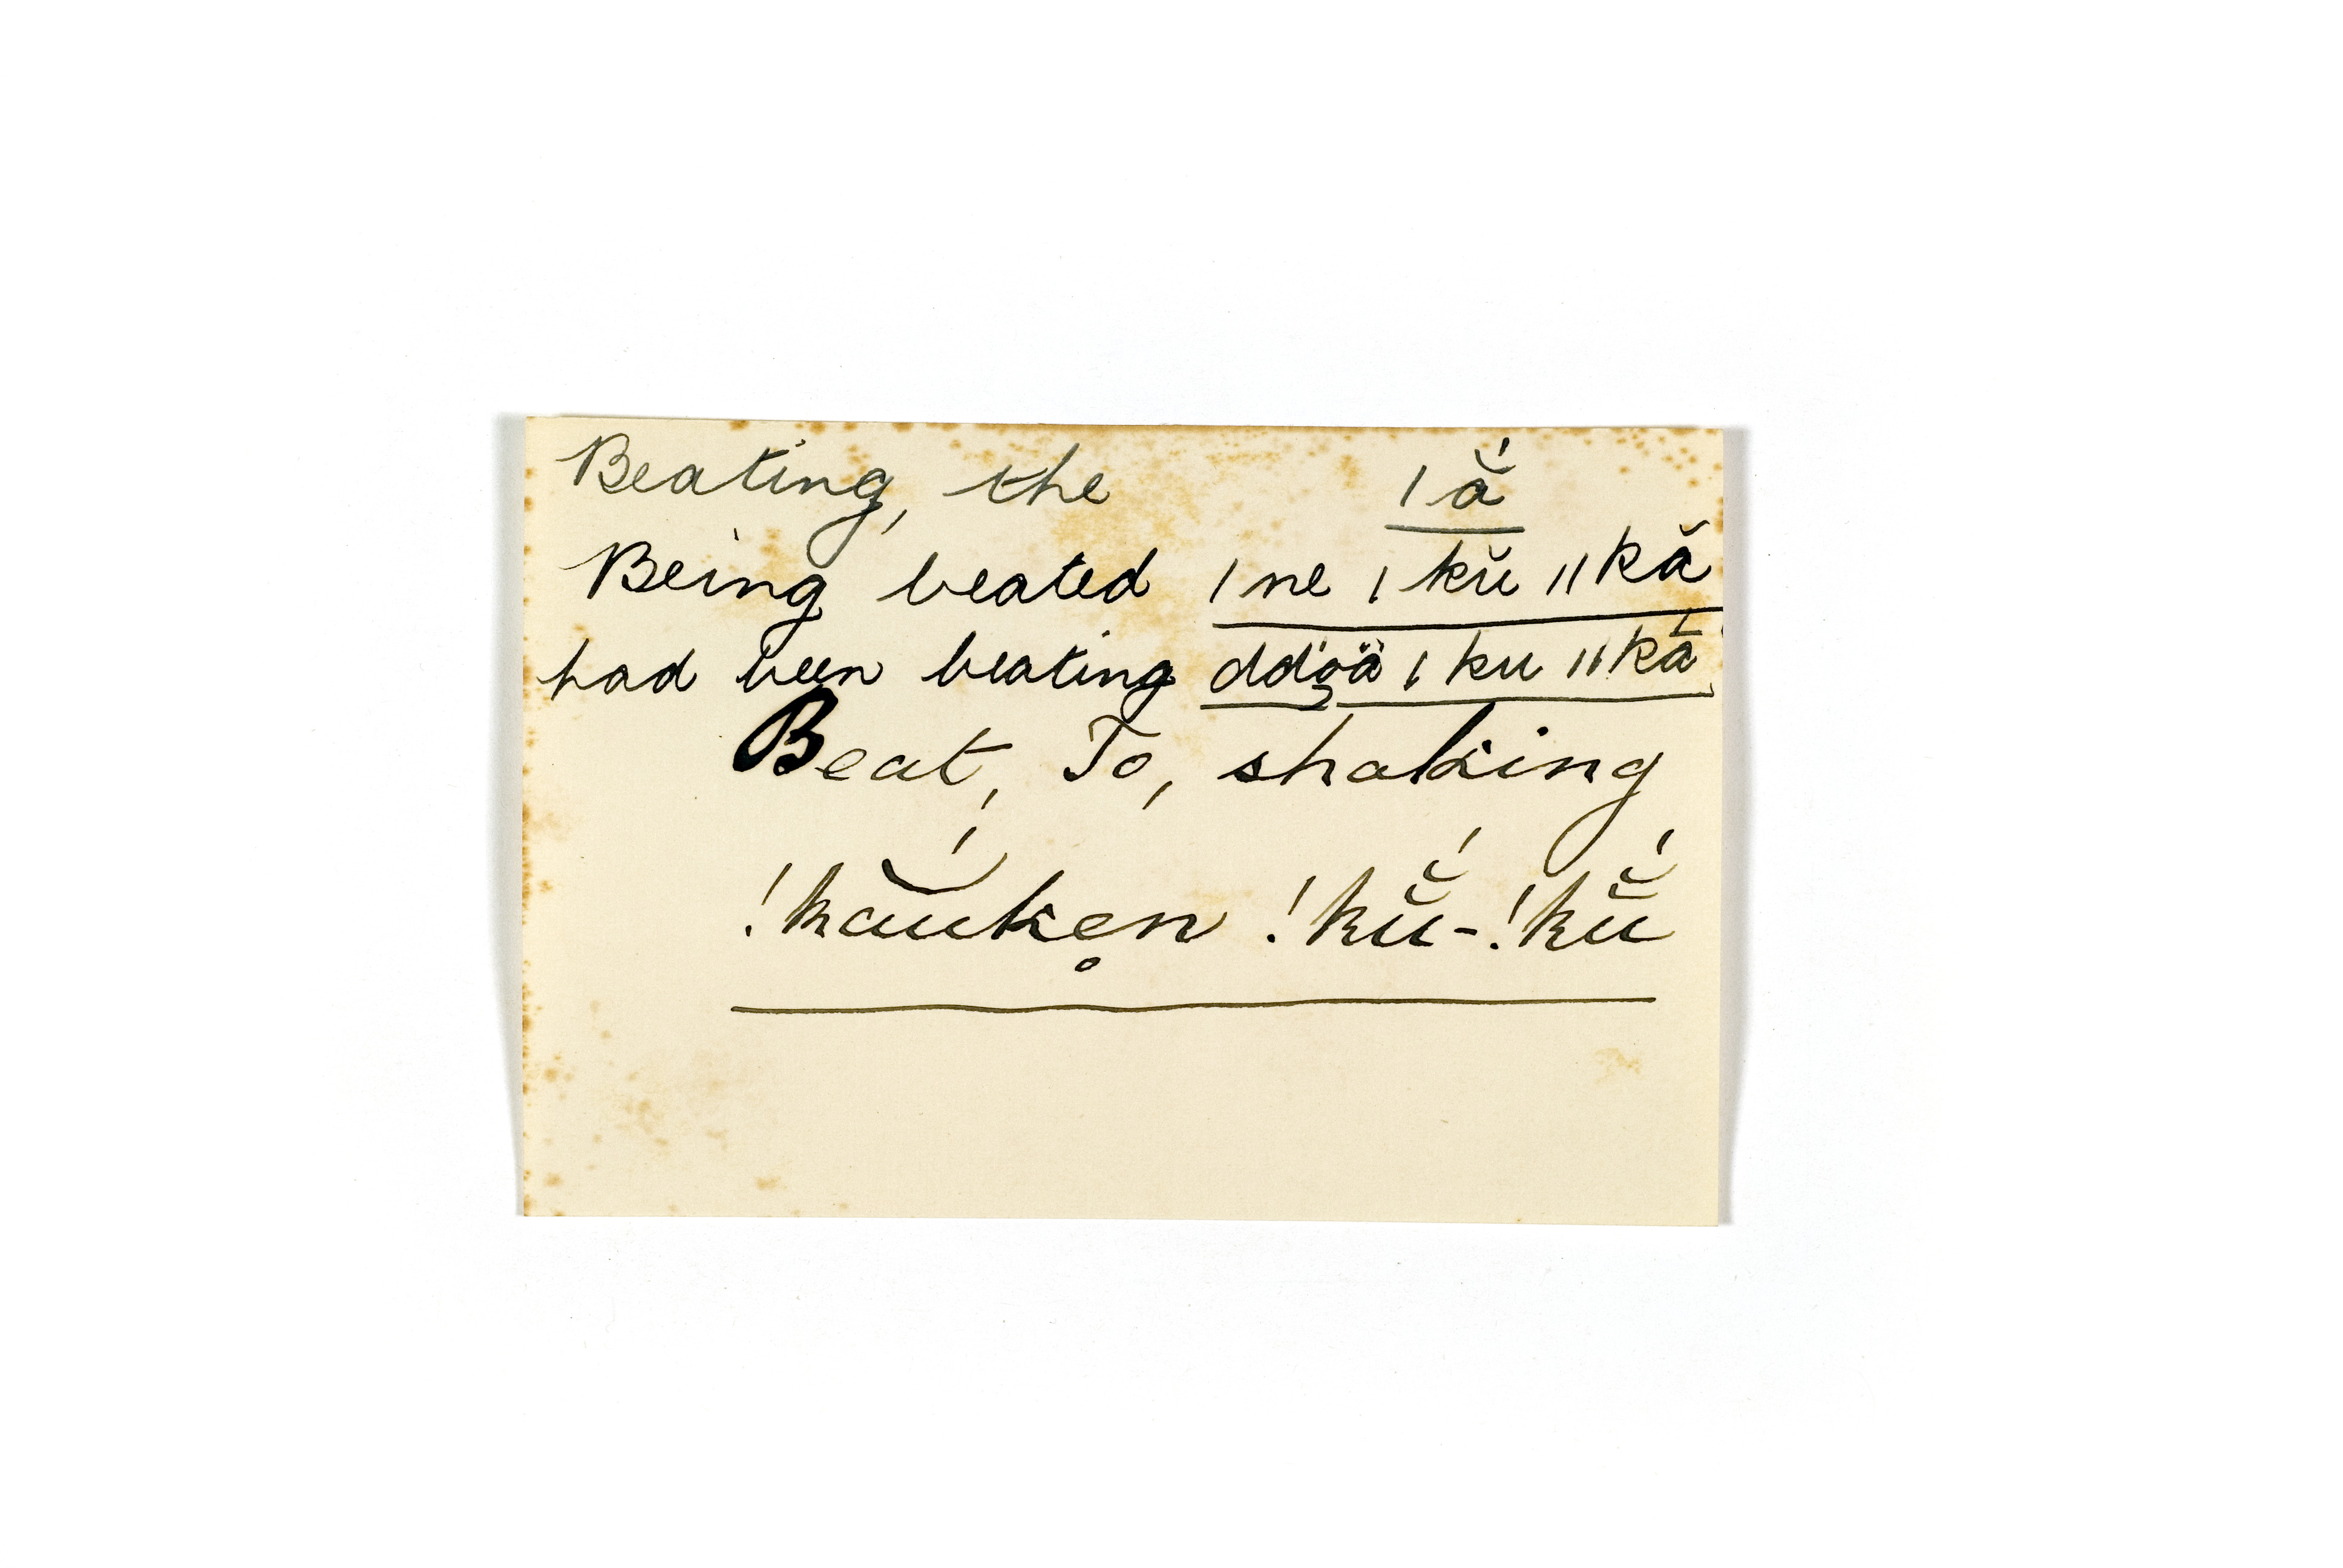 Beating, the ǀ ắ
Being beated ǀ ne ǀ kŭ ǁ kă
had been beating ddóä ǀ ku ǁ kā́
Beat, To, shaking
!kăŭ́ken̥ !kū̆́-!kū̆́